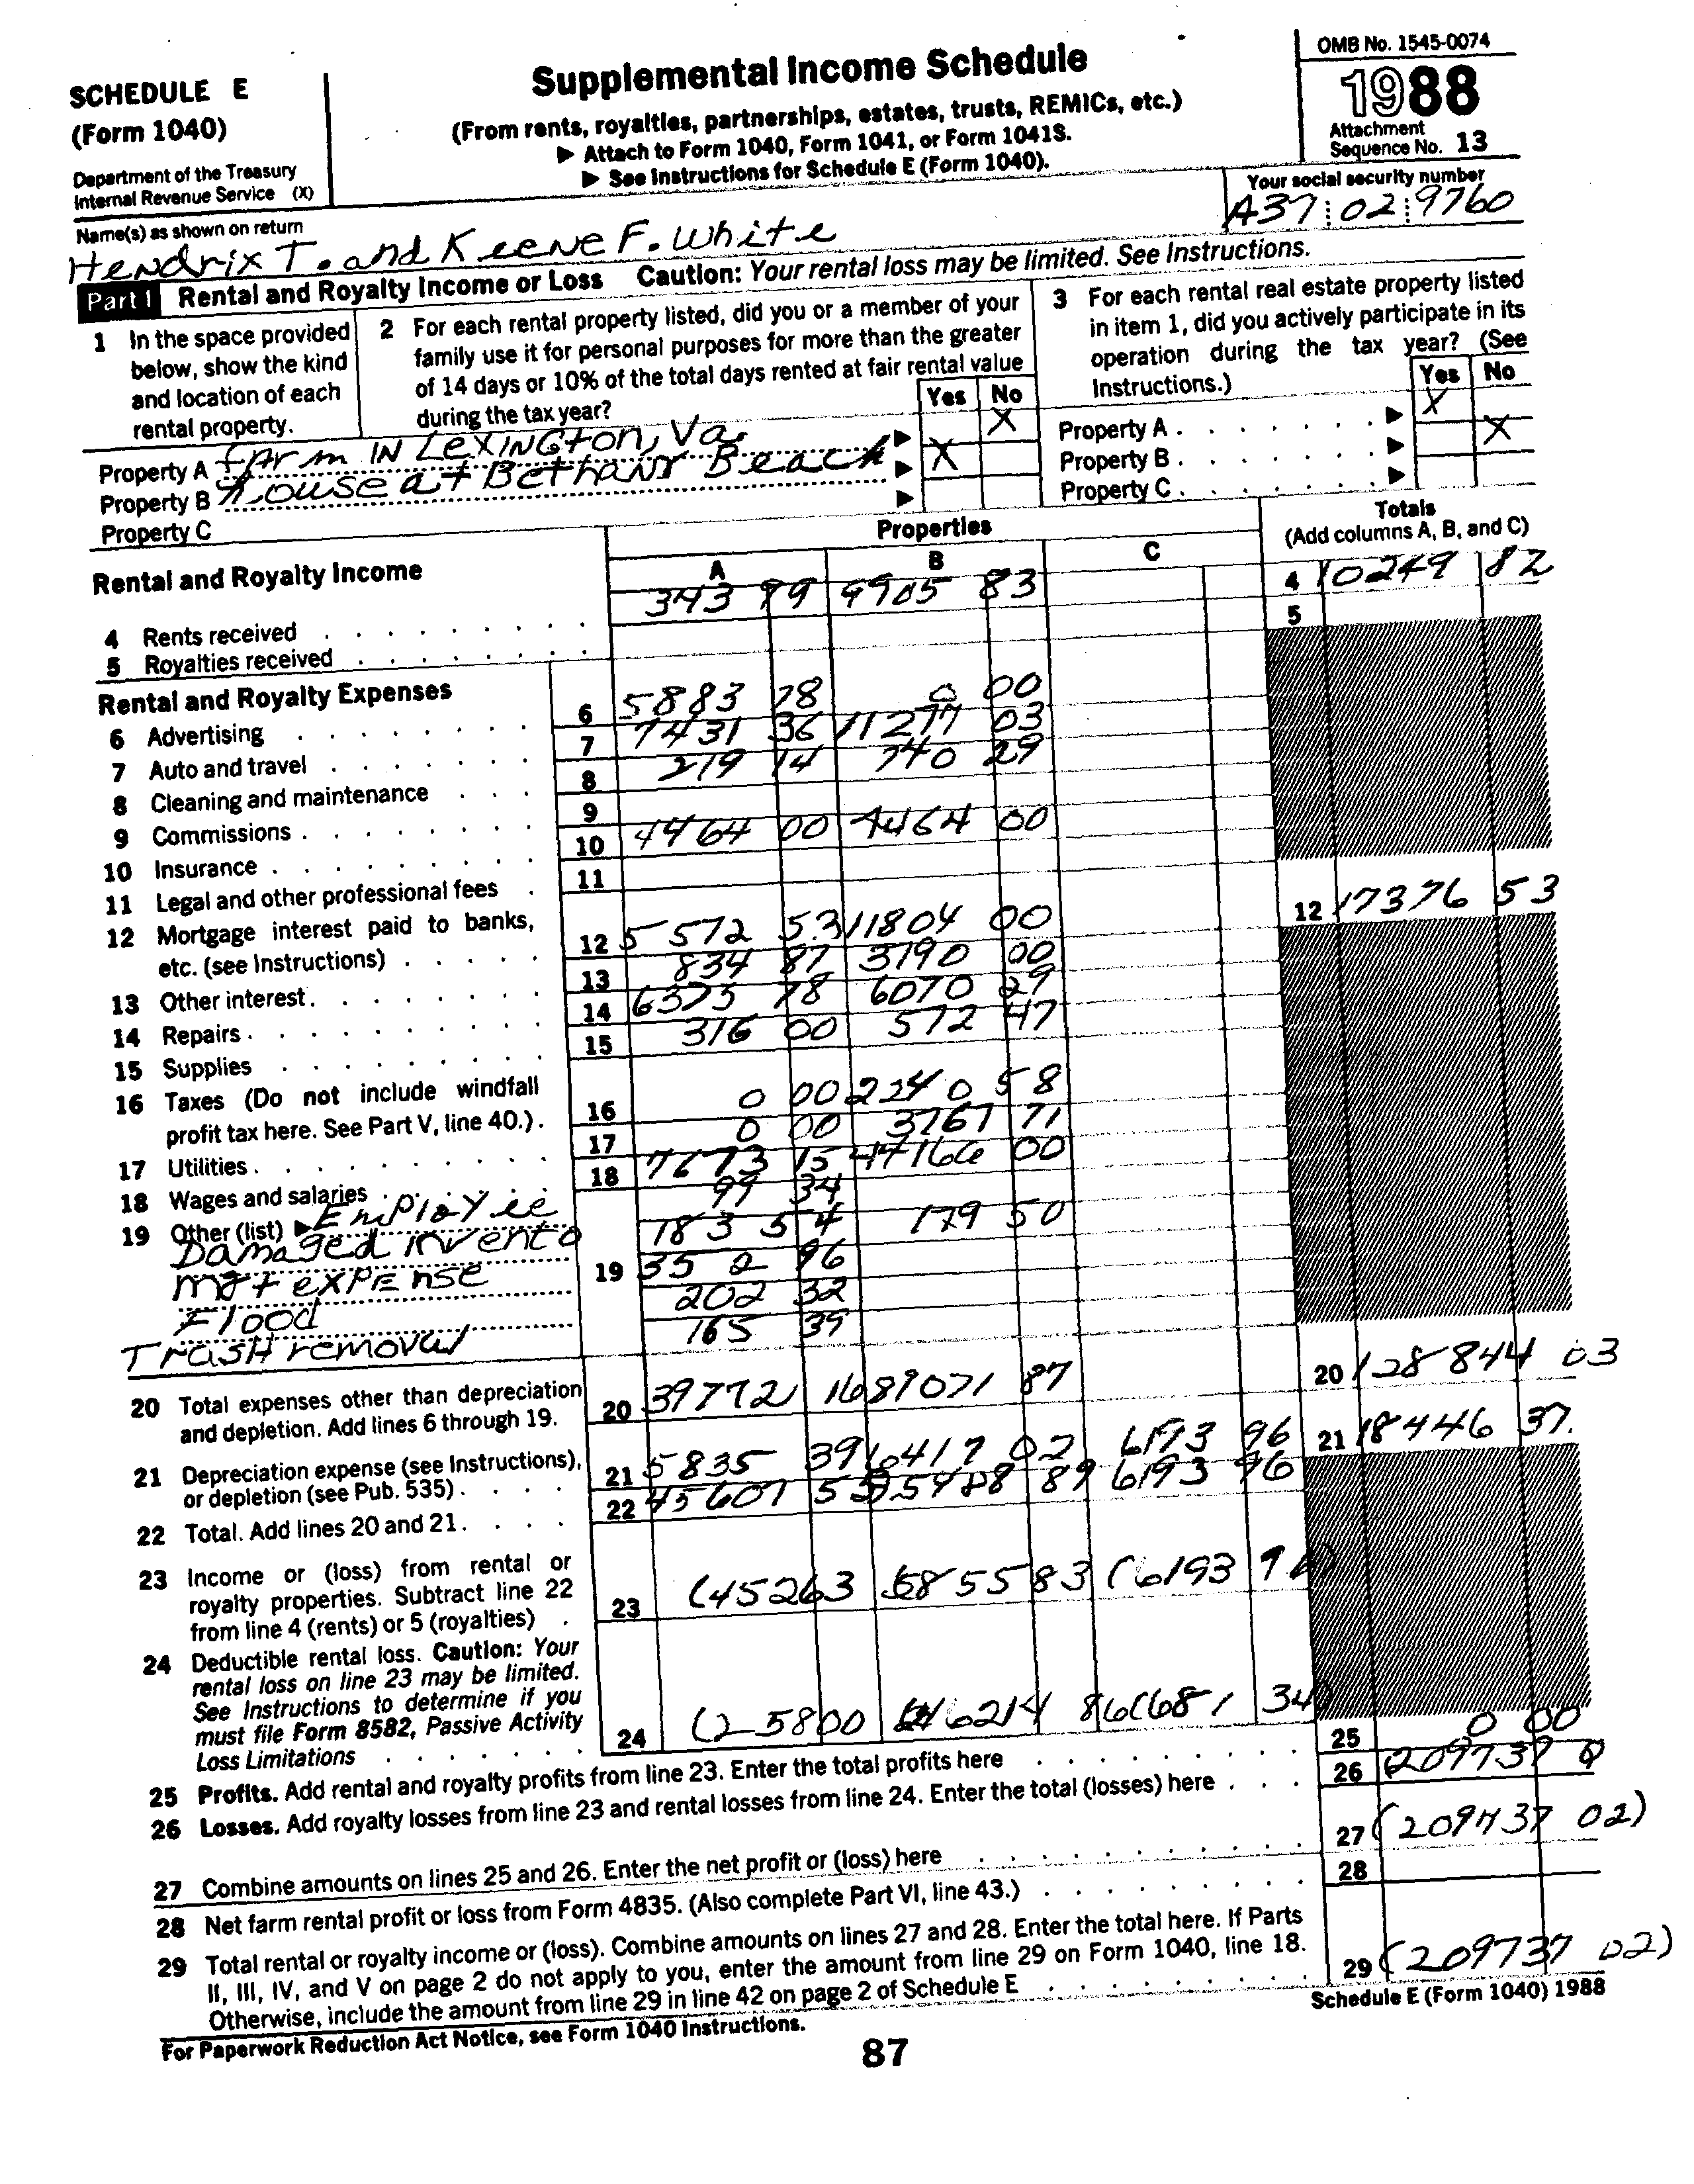 SCHEDULE E
(Form 1040)
Department of the Treasury
Internal Revenue Service (X)
Supplemental Income Schedule
(From rents, royalties, partnerships, estates, trusts, REMICs, etc.)
▶ Attach to Form 1040, Form 1041, or Form 1041S.
▶ See Instructions for Schedule E (Form 1040).
OMB No. 1545-0074
1988
Attachment
Sequence No. 13
Name(s) as shown on return
Hendrix T. and Keene F. White
Your social security number
A37 02 9760
Part I Rental and Royalty Income or Loss Caution: Your rental loss may be limited. See Instructions.
1 In the space provided
below, show the kind
and location of each
rental property.
2 For each rental property listed, did you or a member of your
family use it for personal purposes for more than the greater
of 14 days or 10% of the total days rented at fair rental value
during the tax year?
Yes No
3 For each rental real estate property listed
in item 1, did you actively participate in its
operation during the tax year? (See
Instructions.)
Yes No
Property A farm IN LEXINGton, Va. ▶ X
Property B House at Bethany Beach ▶ X
Property C ▶
Property A . . . ▶ X
Property B . . . ▶ X
Property C . . . ▶
Rental and Royalty Income
Properties
A B C
Totals
(Add columns A, B, and C)
4 Rents received 343 99 9905 83 4 10249 82
5 Royalties received 5
Rental and Royalty Expenses
6 Advertising 6 5883 78 0 00
7 Auto and travel 7 7431 36 11277 03
8 Cleaning and maintenance 8 219 14 740 29
9 Commissions 9
10 Insurance 10 4464 00 4464 00
11 Legal and other professional fees 11
12 Mortgage interest paid to banks,
etc. (see Instructions) 12 5572 53 11804 00 12 17376 53
13 Other interest 13 834 87 3790 00
14 Repairs 14 6375 78 6070 29
15 Supplies 15 316 00 572 47
16 Taxes (Do not include windfall
profit tax here. See Part V, line 40.) 16 0 00 2240 58
17 Utilities 17 0 00 3767 71
18 Wages and salaries 18 7673 15 44166 00
19 Other (list) ▶ Employee 99 34
Damaged invento 183 54 179 50
mgt expense 19 352 96
Flood 202 32
Trash removal 165 39
20 Total expenses other than depreciation
and depletion. Add lines 6 through 19. 20 39772 16 89071 87 20 128844 03
21 Depreciation expense (see Instructions),
or depletion (see Pub. 535) 21 5835 39 6417 02 6193 96 21 18446 37.
22 Total. Add lines 20 and 21. 22 45607 55 95488 89 6193 96
23 Income or (loss) from rental or
royalty properties. Subtract line 22
from line 4 (rents) or 5 (royalties) 23 (45263 5855 83 (6193
24 Deductible rental loss. Caution: Your
rental loss on line 23 may be limited.
See Instructions to determine if you
must file Form 8582, Passive Activity
Loss Limitations 24 (25800 46214 86 (681 34)
25 Profits. Add rental and royalty profits from line 23. Enter the total profits here 25 0 00
26 Losses. Add royalty losses from line 23 and rental losses from line 24. Enter the total (losses) here 26 (209737 0
27 Combine amounts on lines 25 and 26. Enter the net profit or (loss) here 27 (209737 02)
28 Net farm rental profit or loss from Form 4835. (Also complete Part VI, line 43.) 28
29 Total rental or royalty income or (loss). Combine amounts on lines 27 and 28. Enter the total here. If Parts
II, III, IV, and V on page 2 do not apply to you, enter the amount from line 29 on Form 1040, line 18.
Otherwise, include the amount from line 29 in line 42 on page 2 of Schedule E 29 (209737 02)
For Paperwork Reduction Act Notice, see Form 1040 Instructions.
Schedule E (Form 1040) 1988
87